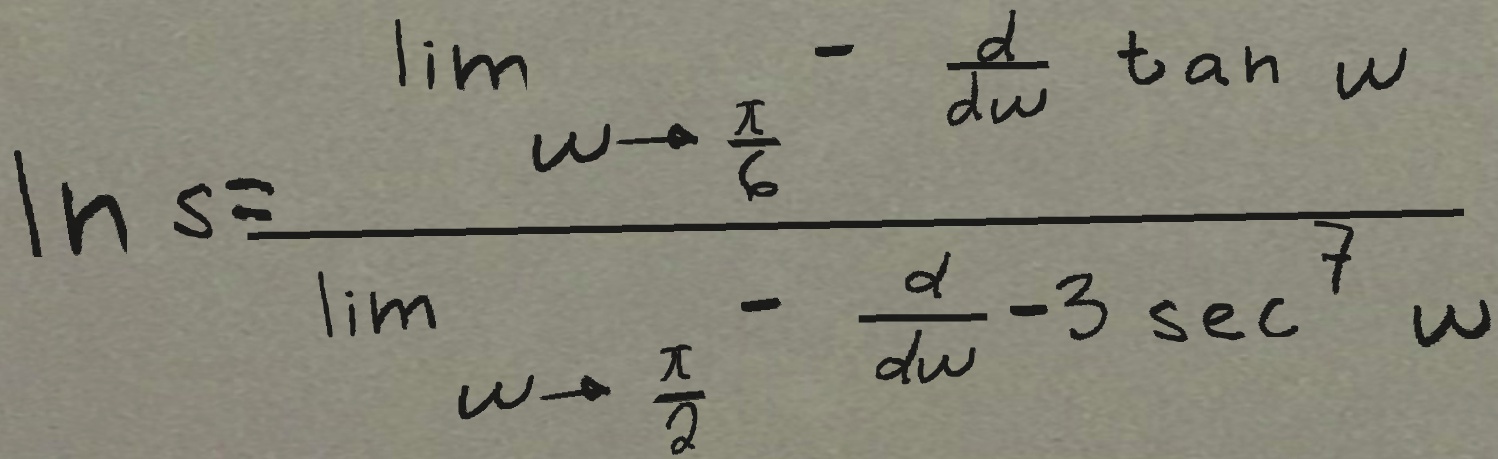 ln s = \frac{\lim_{w \to \frac{\pi}{6}} - \frac{d}{dw} \tan w}{\lim_{w \to \frac{\pi}{2}} - \frac{d}{dw} -3 \sec^7 w}